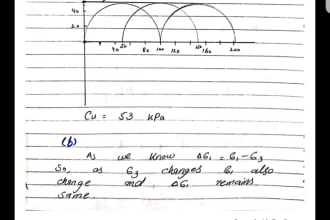 40
20
40 50 80 100 120 150 160 200
Cu = 53 kPa
(b)
As we know ΔG₁ = G₁ - G₃
So, as G₃ changes G₁ also
change and ΔG₁ remains
same.